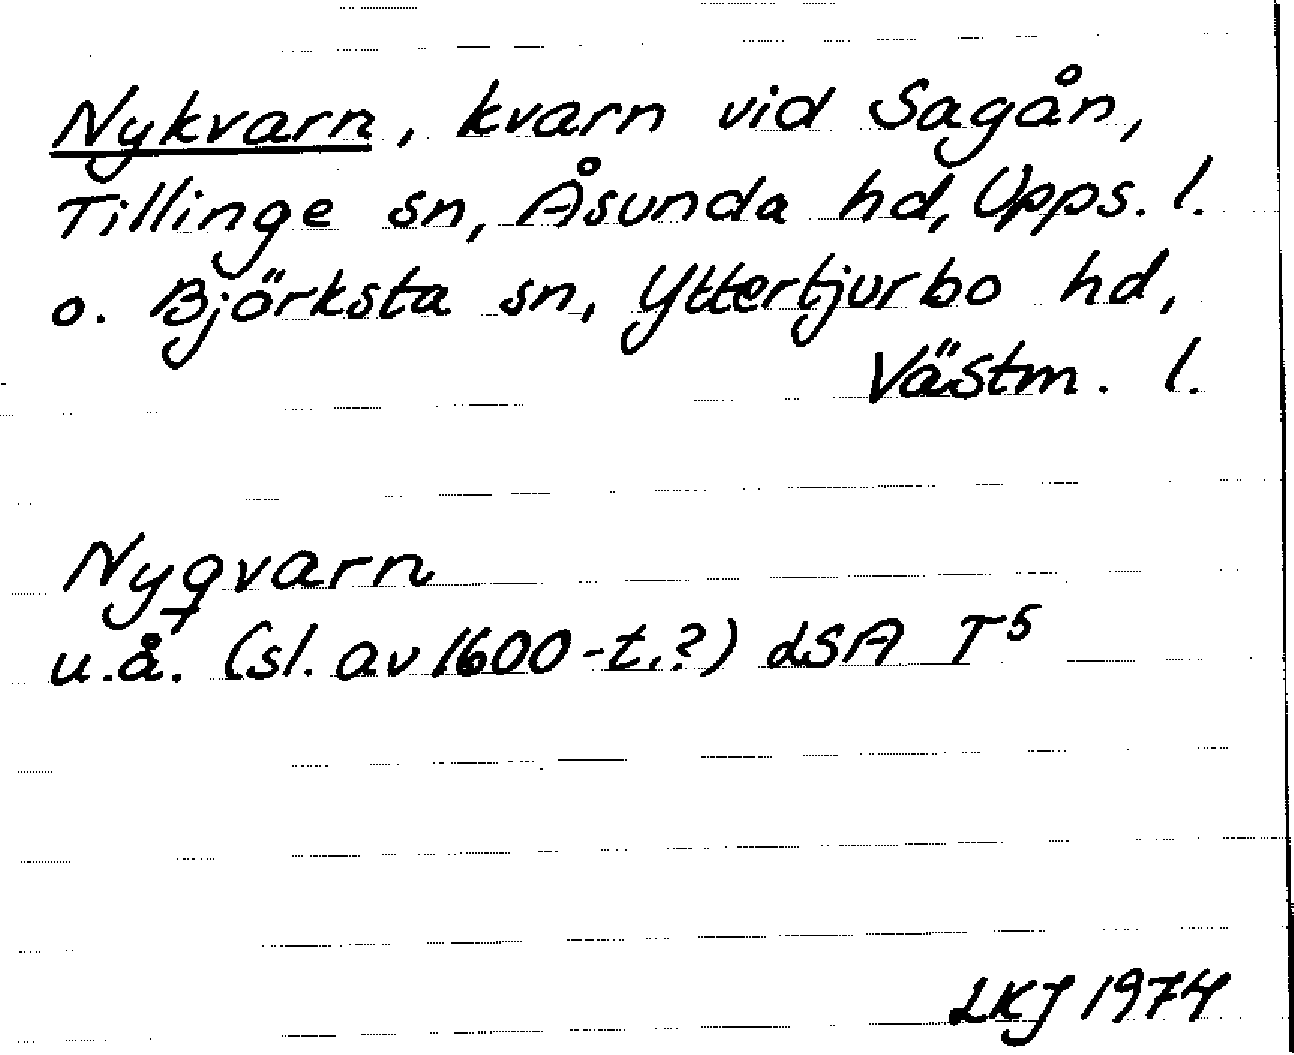 Nykvarn, kvarn vid Sagån,
Tillinge sn, Åsunda hd, Upps. l.
o. Björksta sn, Yttertjurbo hd,
Västm. l.
Nyqvarn
u.å. (sl. av 1600-t.?) LSA T5
LKJ 1974